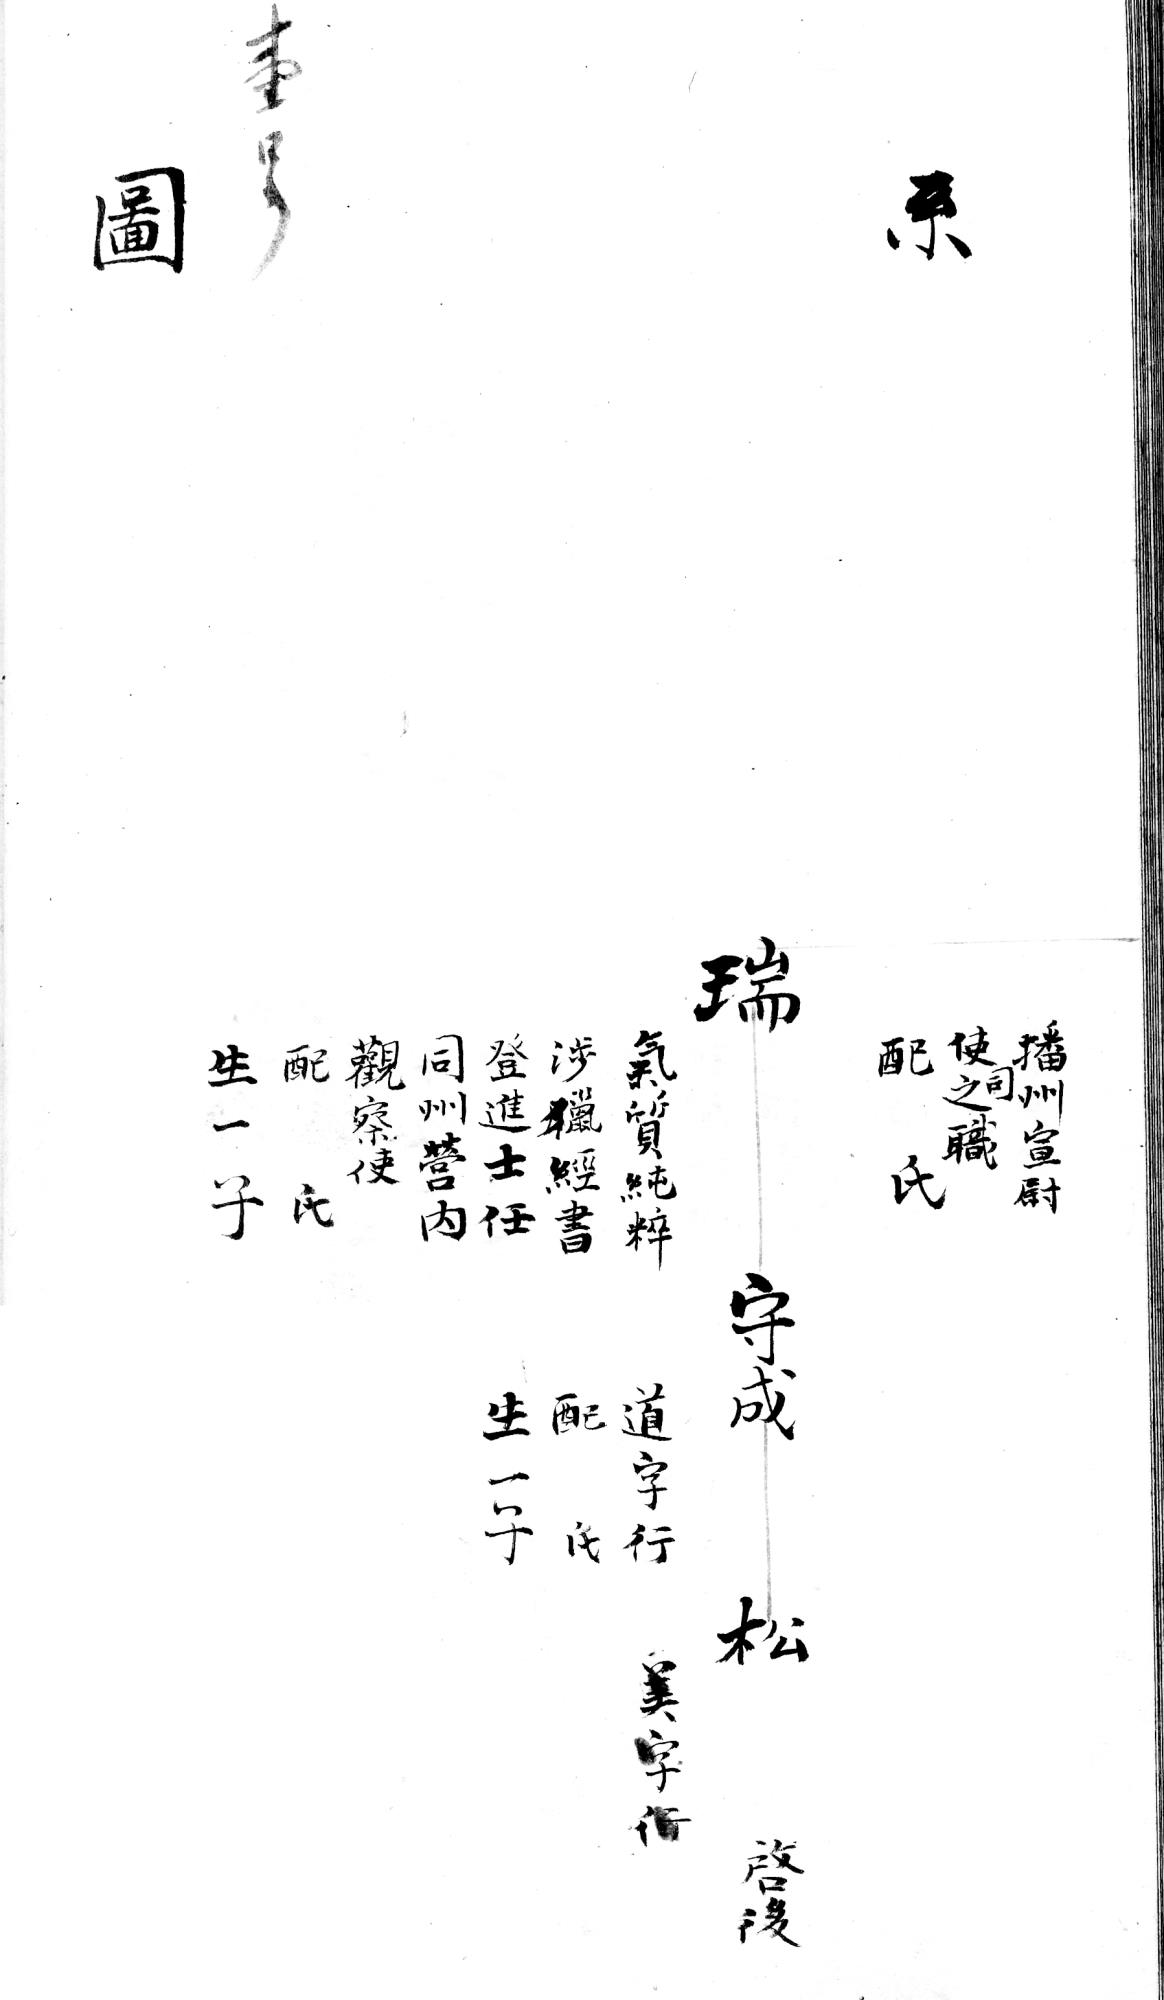 系
圖
播州宣尉
使司之職
配 氏
瑞
氣質純粹
涉獵經書
登進士任
同州營內
觀察使
配 氏
生一子
守成
道字行
配 氏
生一子
松
字行
啓後